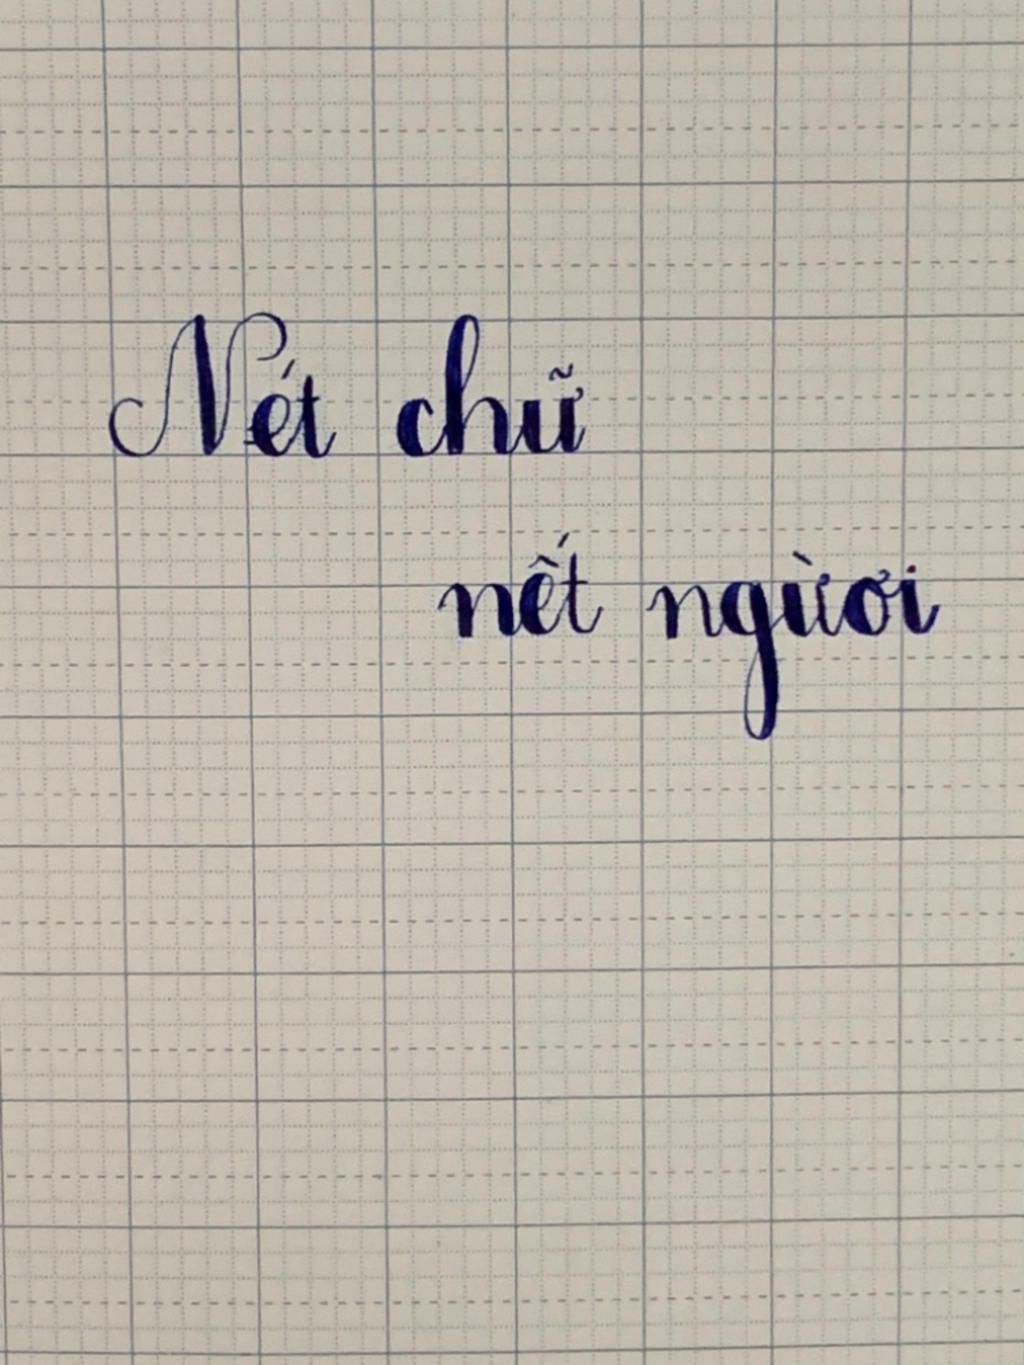 Nét chữ
nết ngừơi